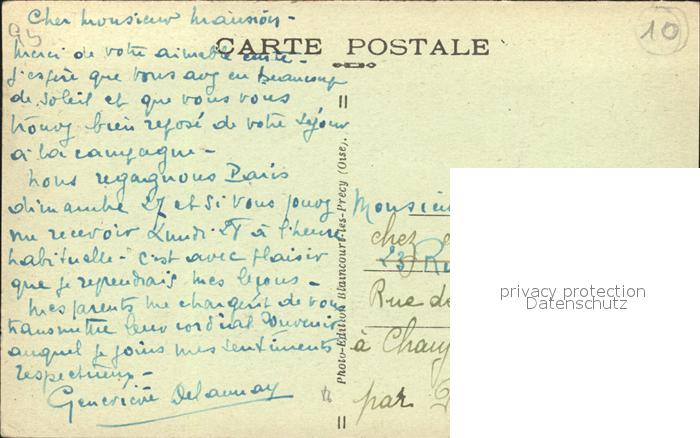 95
10
CARTE POSTALE
Cher Monsieur Mansion -
Merci de votre aimable carte -
J'espère que vous avez eu beaucoup
de soleil et que vous vous
trouvez bien reposé de votre séjour
à la campagne -
Nous regagnons Paris
dimanche 27 et si vous pouvez
me recevoir Lundi 28 à l'heure
habituelle - c'est avec plaisir
que je reprendrais mes leçons -
Mes parents me chargent de vous
transmettre leur cordial souvenir
auquel je joins mes sentiments
respectueux -
Geneviève Delaunay
Photo-Edition Blaincourt-les-Précy (Oise).
Monsieur
chez
23 Ru
Rue de
à Chau
par
privacy protection
Datenschutz